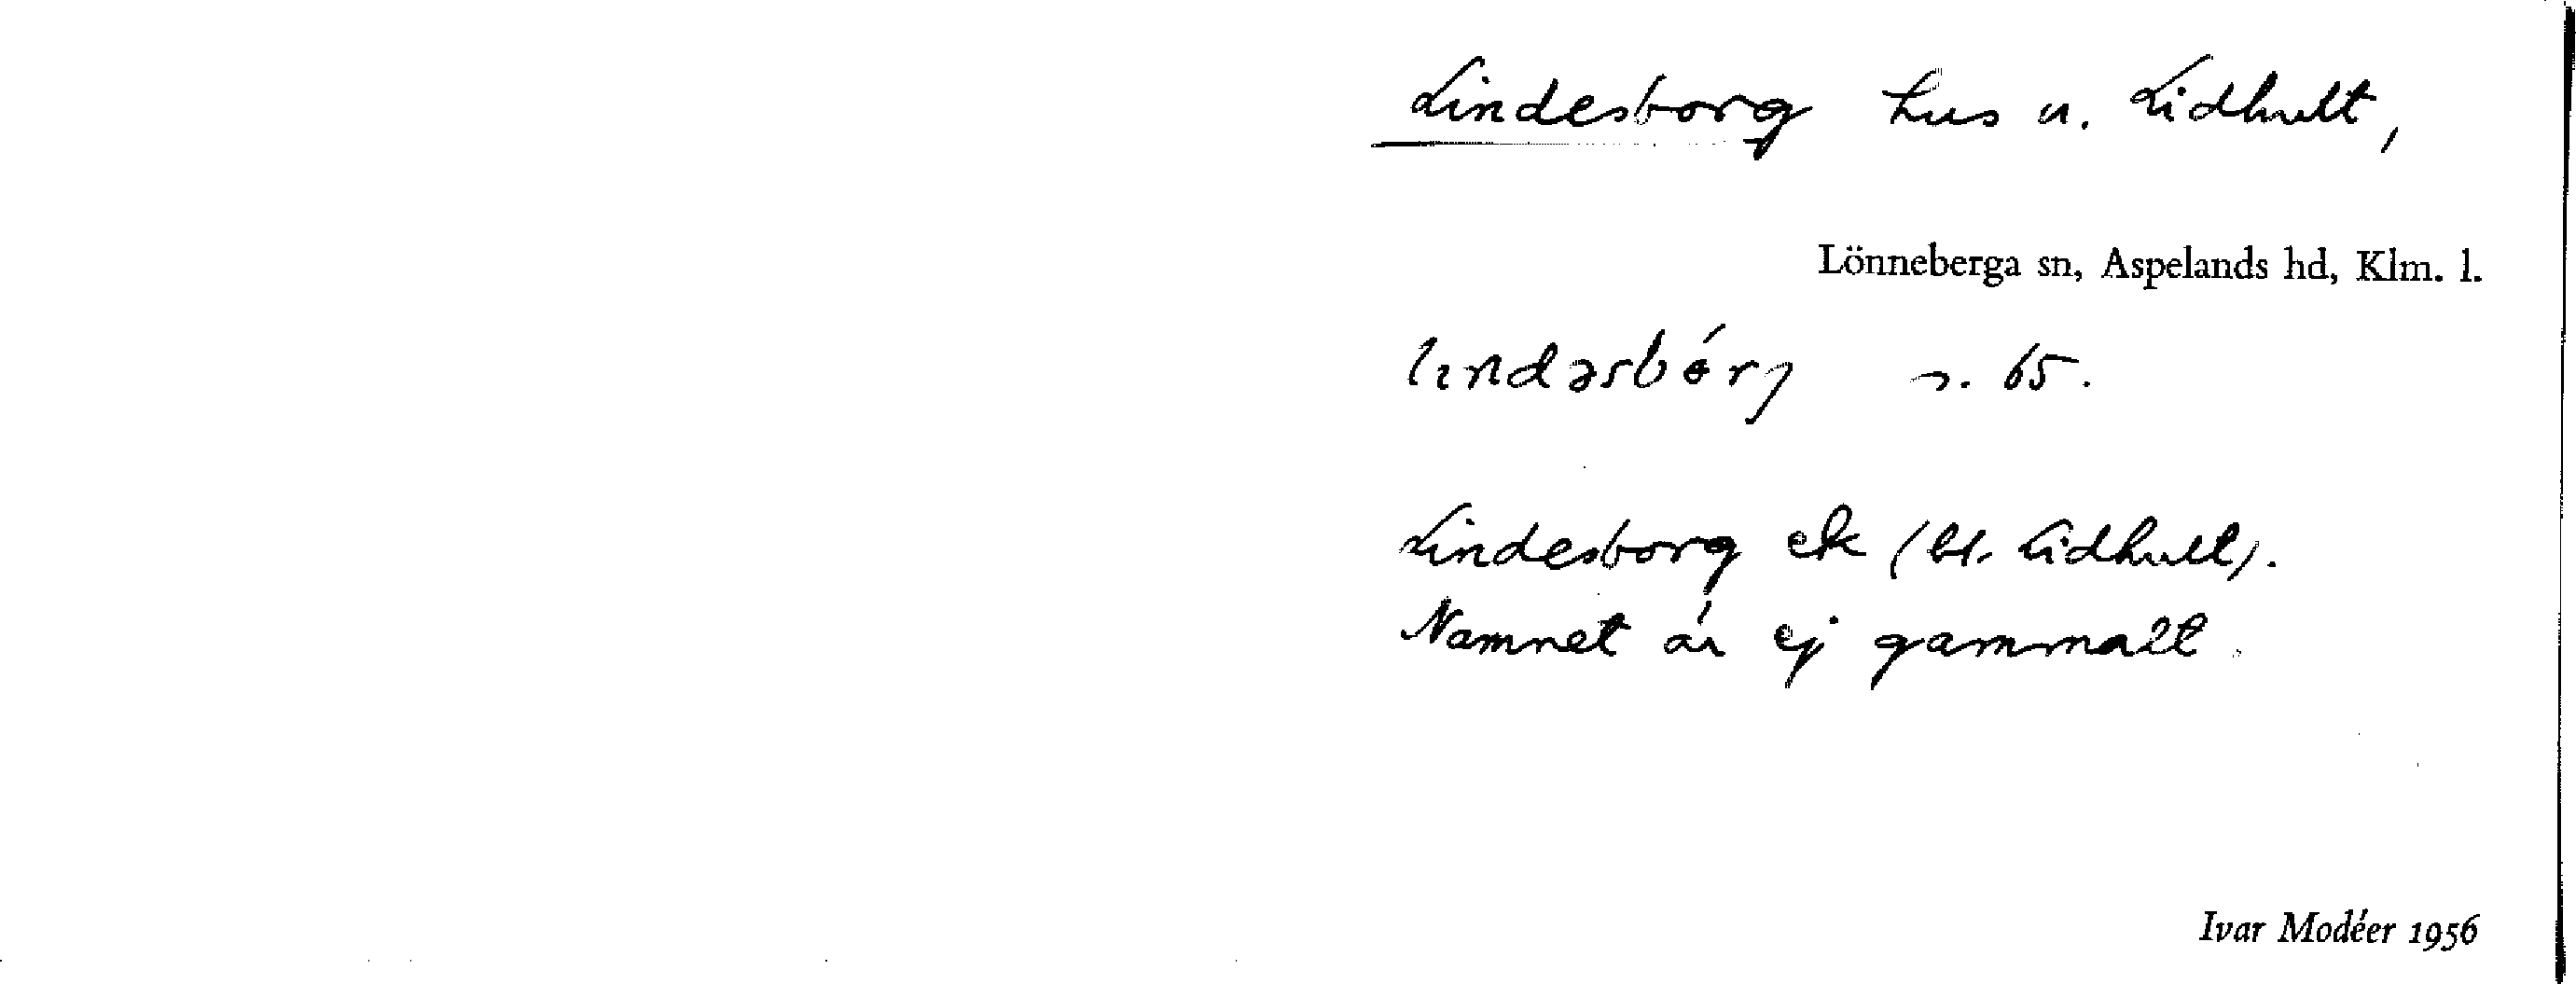 Lindesborg hus u. Lidhult,
Lönneberga sn, Aspelands hd, Klm. l.
lındəsbórj s. 65.
Lindesborg ek (bl. Lidhult).
Namnet är ej gammalt.
Ivar Modéer 1956